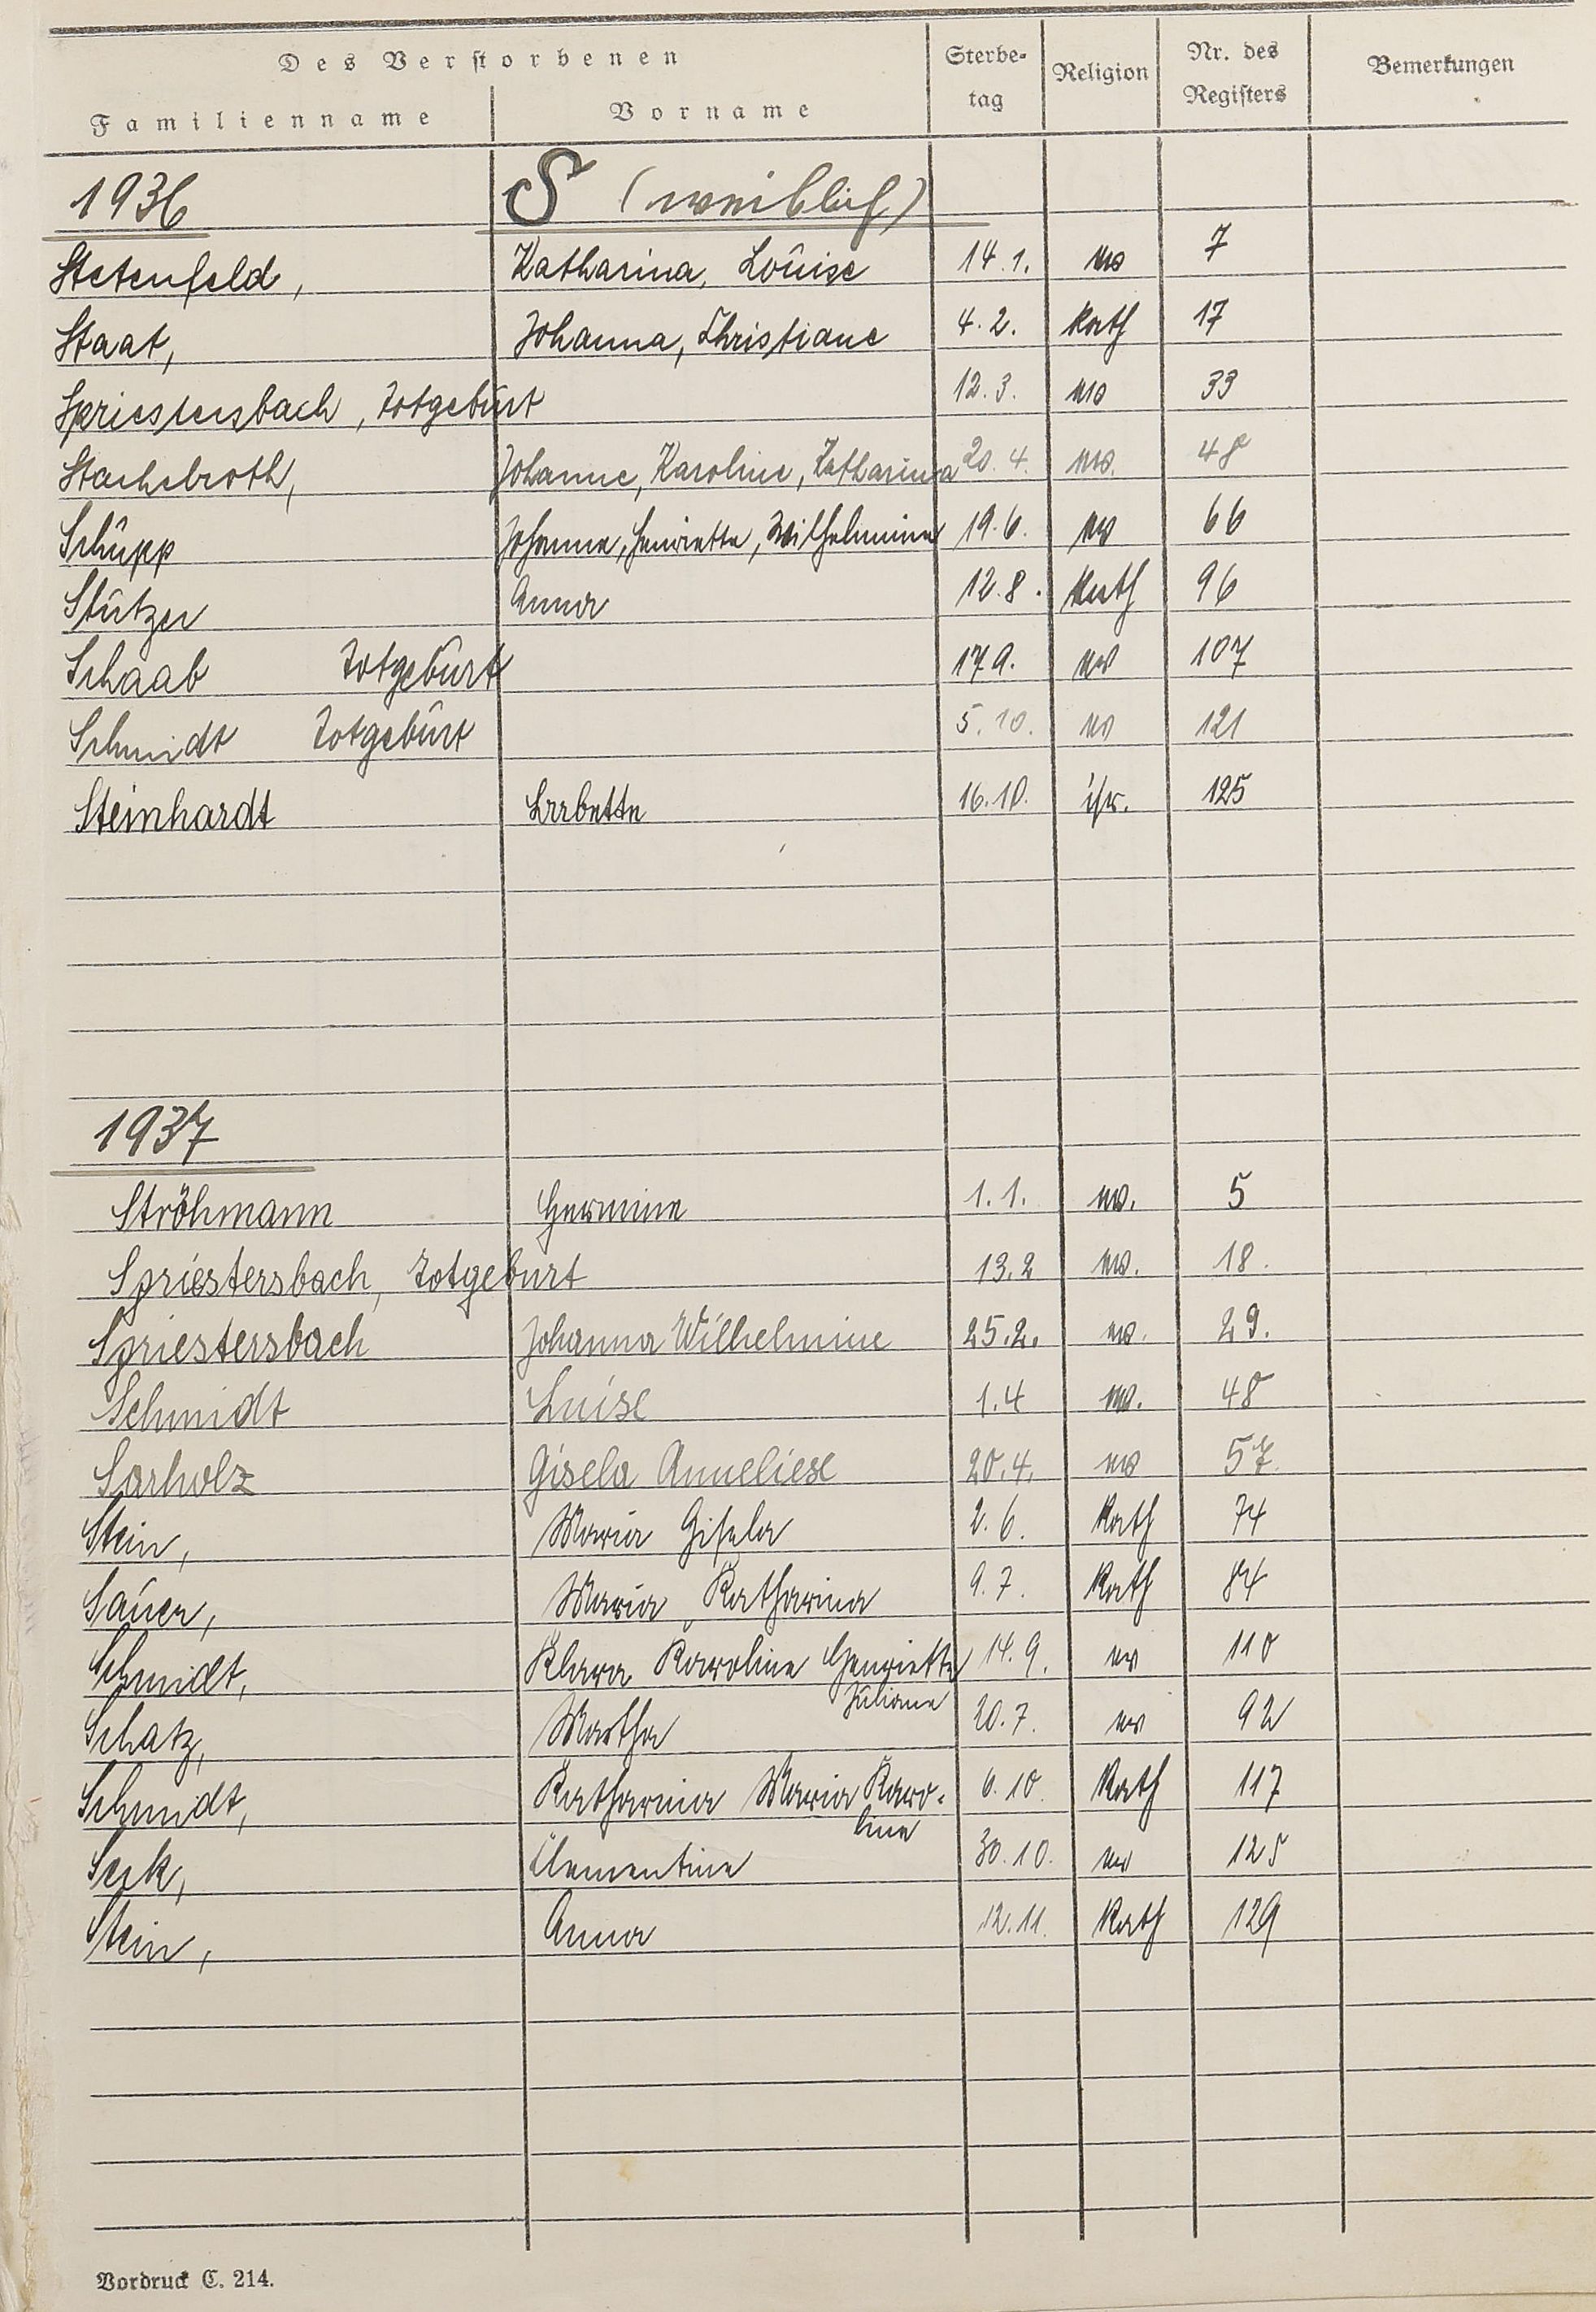 Des Verstorbenen
Familienname Vorname Sterbe-tag Religion Nr. des Registers Bemerkungen
1936 S (weiblich)
Stetenfeld, Katharina, Louise 14.1. ev 7
Staat, Johanna, Christiane 4.2. kath 17
Spriestersbach, Totgeburt 12.3. ev 33
Stachelroth, Johanne, Karoline, Katharina 20.4. ev. 48
Schupp Johanna, Henriette, Wilhelmine 19.6. ev 66
Stützer Anna 12.8. kath 96
Schaab Totgeburt 17.9. ev 107
Schmidt Totgeburt 5.10. ev 121
Steinhardt Babette 16.10. isr. 125
1937
Ströhmann Hermine 1.1. ev. 5
Spriestersbach, Totgeburt 13.2 ev. 18.
Spriestersbach Johanna Wilhelmine 25.2. ev. 29.
Schmidt Luise 1.4 ev. 48
Sarholz Gisela Anneliese 20.4. ev 57.
Stein, Maria Gisela 2.6. Kath 74
Sauer, Maria Katharina 9.7. Kath 84
Schmidt, Klara Karoline Henriette 14.9. ev 110
Juliane
Schatz, Martha 20.7. ev 92
Schmidt, Katharina Maria Karo- 6.10. Kath 117
line
Seck, Clementine 30.10. ev 125
Stein, Anna 12.11. Kath 129
Vordruck C. 214.